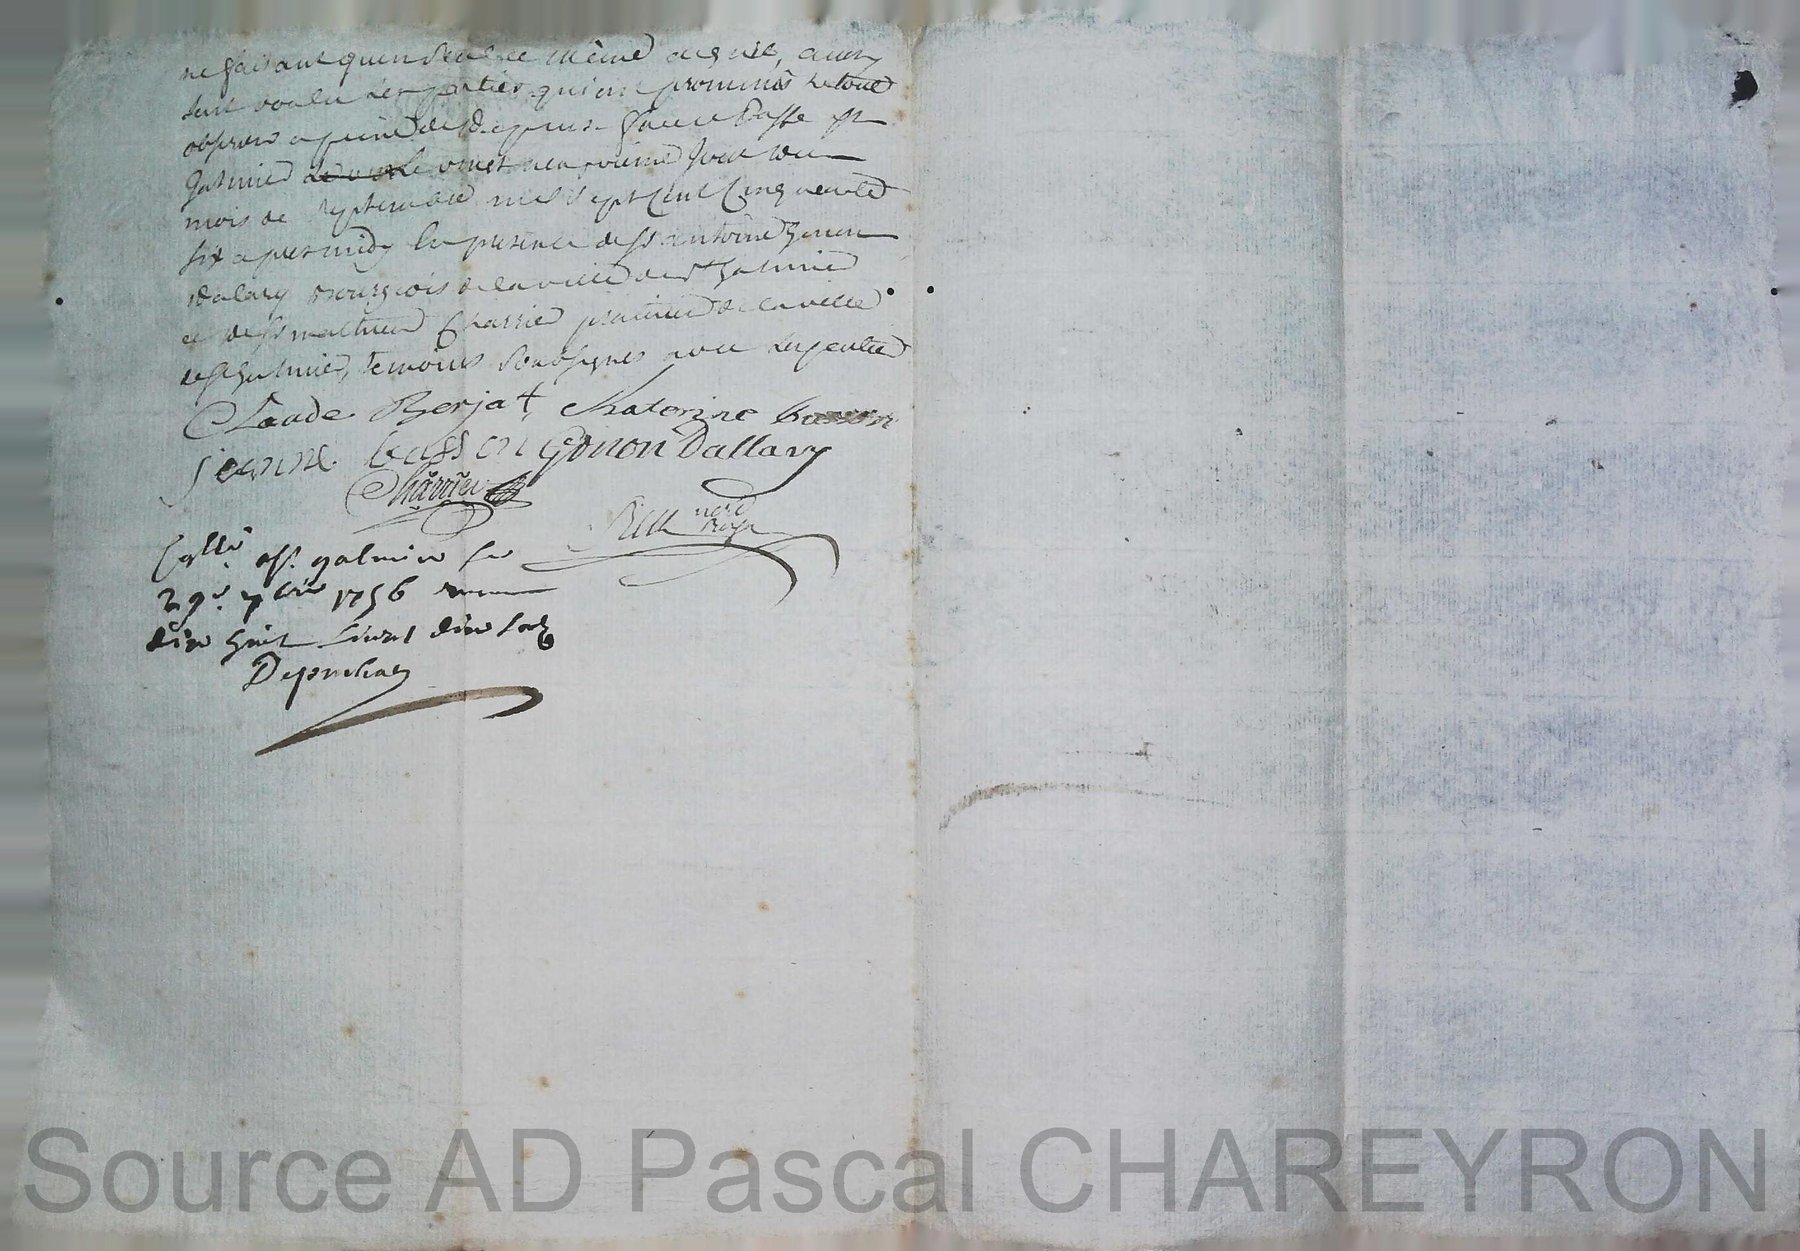 ne faisant qu'un seul et même acquit, ainsy
lont voulu les parties qui ont promis le tout
observer a peine de depens fait et passé st
galmier le vingt neufvieme jour du
mois de septembre mil sept cent cinquante
six apres midy en presence de sr antoine Genon
dalary Bourgeois de la ville de st galmier
et de sr mathieu Charrier praticien de la ville
de st galmier, temoins soussignes avec les parties
Claude Berjat, Katerine basson
jeanne basson Genon Dallary
Charrier
nore Royal
Collé a st. galmier le
29e 7bre 1756
dix huit livres dix sols
Source AD Pascal CHAREYRON